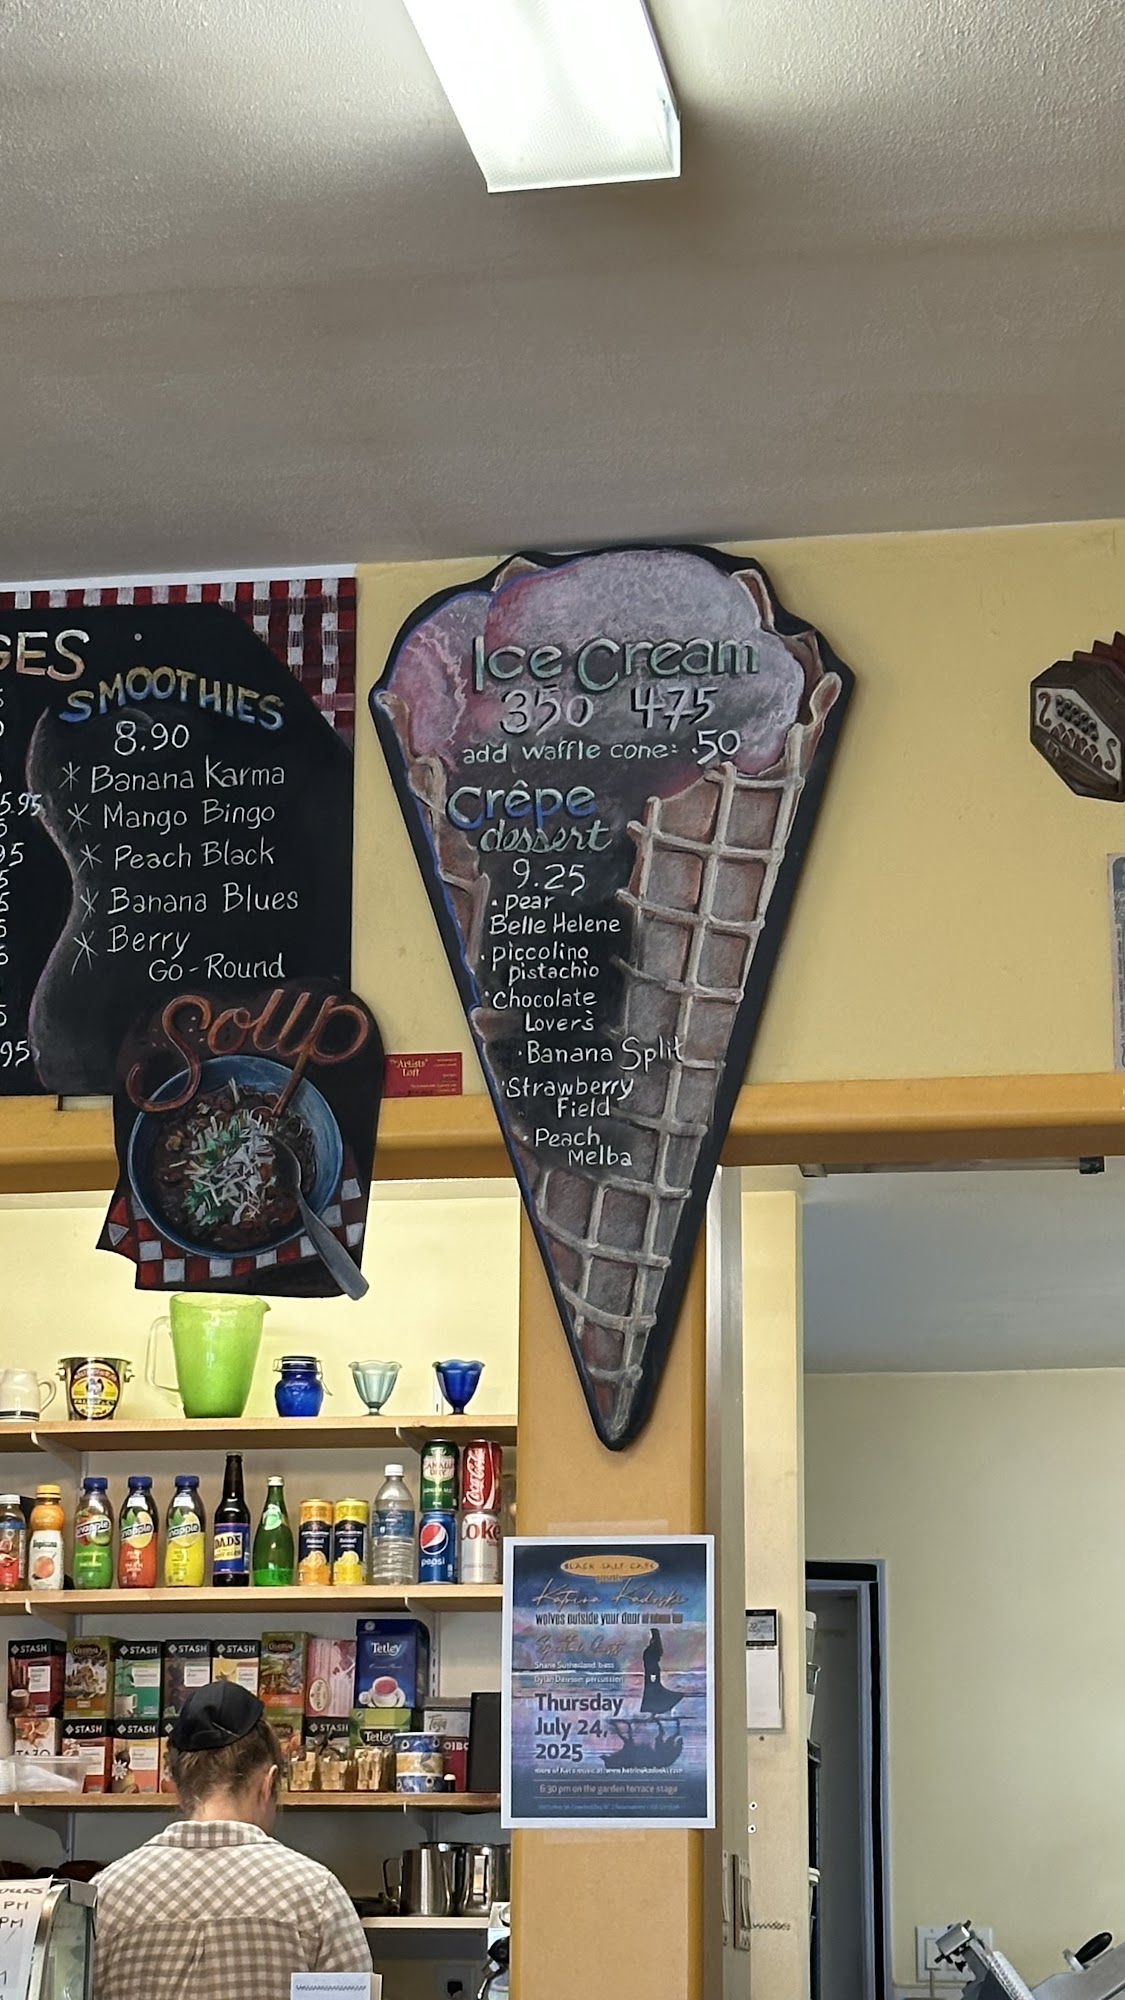 GES
SMOOTHIES
8.90
Banana Karma
Mango Bingo
Peach Black
Banana Blues
Berry
Go-Round
5.95
95
95
Soup
Ice Cream
350 475
add waffle cone: .50
Crêpe
dessert
9.25
· Pear
Belle Helene
· piccolino
pistachio
· Chocolate
Lover's
· Banana Split
· Strawberry
Field
· Peach
Melba
"Artists"
Loft
CANADA DRY
Coca-Cola
Snapple
Snapple
Snapple
DAD'S
pepsi
Coke
STASH
STASH
STASH
STASH
Tetley
STASH
STASH
STASH
Tetley
TAZO
BLACK SALT CAFE
Katrina Kadoski
wolves outside your door
Shane Sutherland bass
Dylan Dawson percussion
Thursday
July 24,
2025
6:30 pm on the garden terrace stage
PM
PM